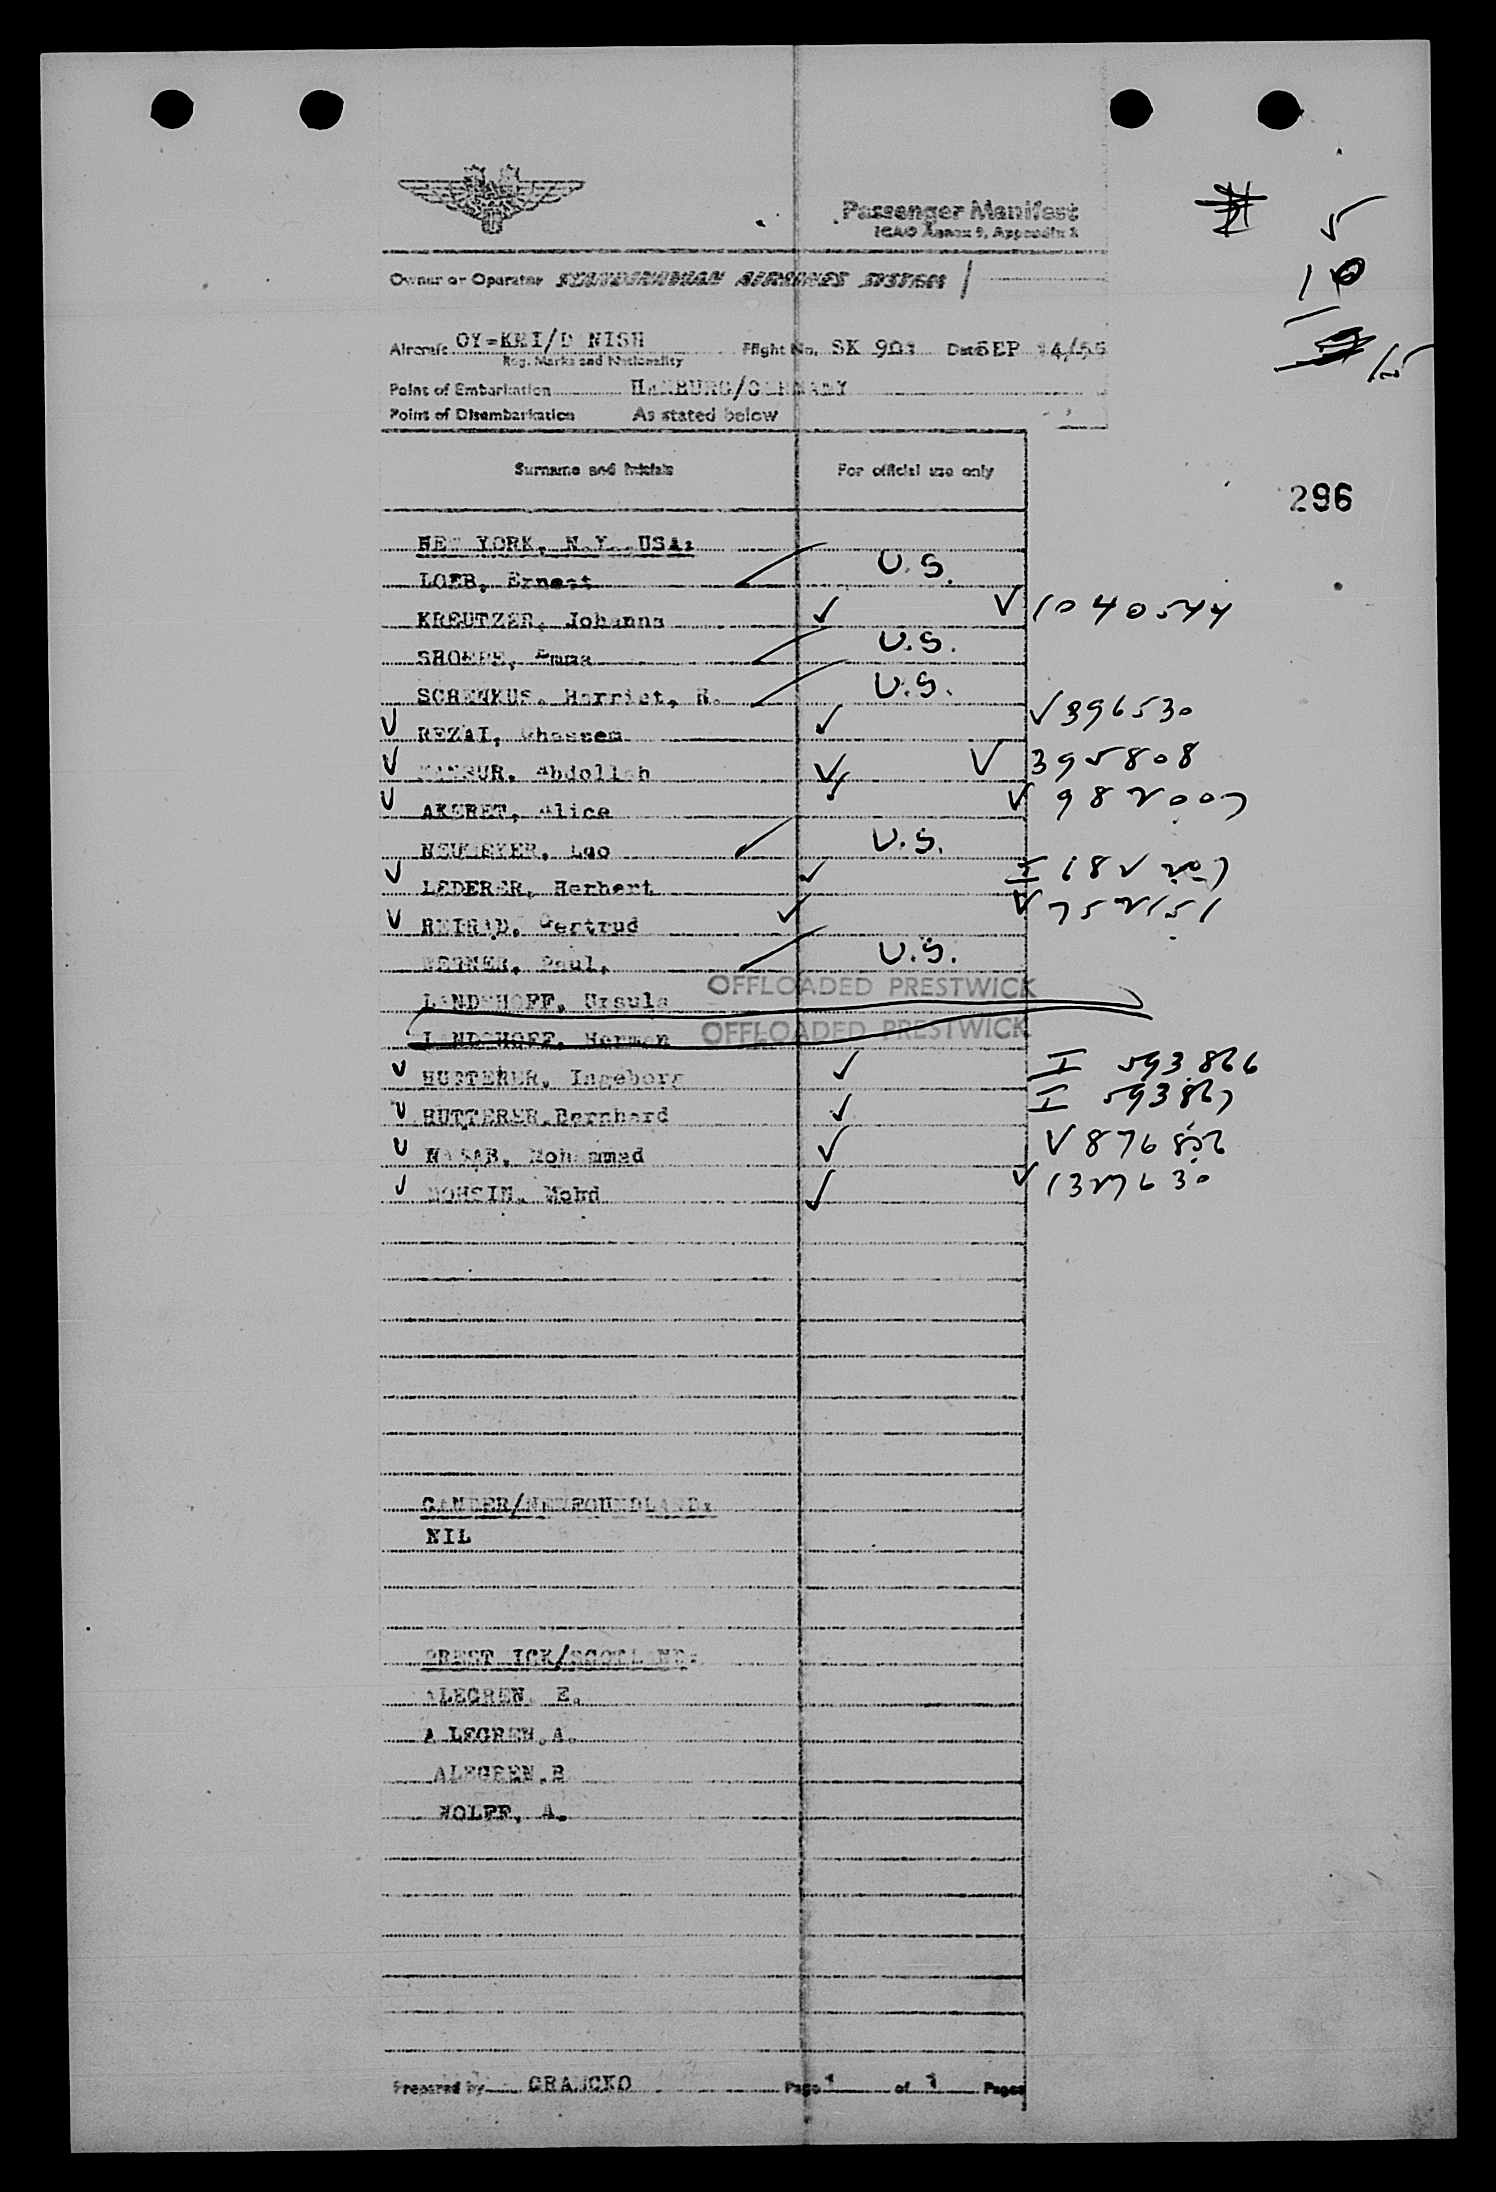 Passenger Manifest
ICAO Annex 9, Appendix 3
Owner or Operator SCANDINAVIAN AIRLINES SYSTEM
Aircraft OY-KMI/D NISH Flight No. SK 903 Date SEP 14/56
Reg. Marks and Nationality
Point of Embarkation HAMBURG/GERMANY
Point of Disembarkation As stated below
Surname and Initials For official use only
5
10
15
296
NEW YORK, N.Y. USA:
LOEB, Ernest U.S.
KREUTZER, Johanna V 1040544
Emma U.S.
SCHENKUS, Harriet, R. U.S.
REZAI, Ghassem V 396530
Abdollah V 395808
AKERET, Alice V 982007
NEUMEYER, Leo U.S.
LEDERER, Herbert I 182207
Gertrud V 752151
Paul, U.S.
LANDSHOFF, Ursula OFFLOADED PRESTWICK
LANDSHOFF, Herman OFFLOADED PRESTWICK
HUTTERER, Ingeborg I 593866
HUTTERER, Bernhard I 593867
Mohammed V 876
MOHSIN, Mohd V 1327630
GANDER/NEWFOUNDLAND:
NIL
PREST ICK/SCOTLAND:
ALEGREN, E.
A LEGREN, A.
ALEGREN, B
WOLFF, A.
Prepared by GRANCKO Page 1 of 1 Pages